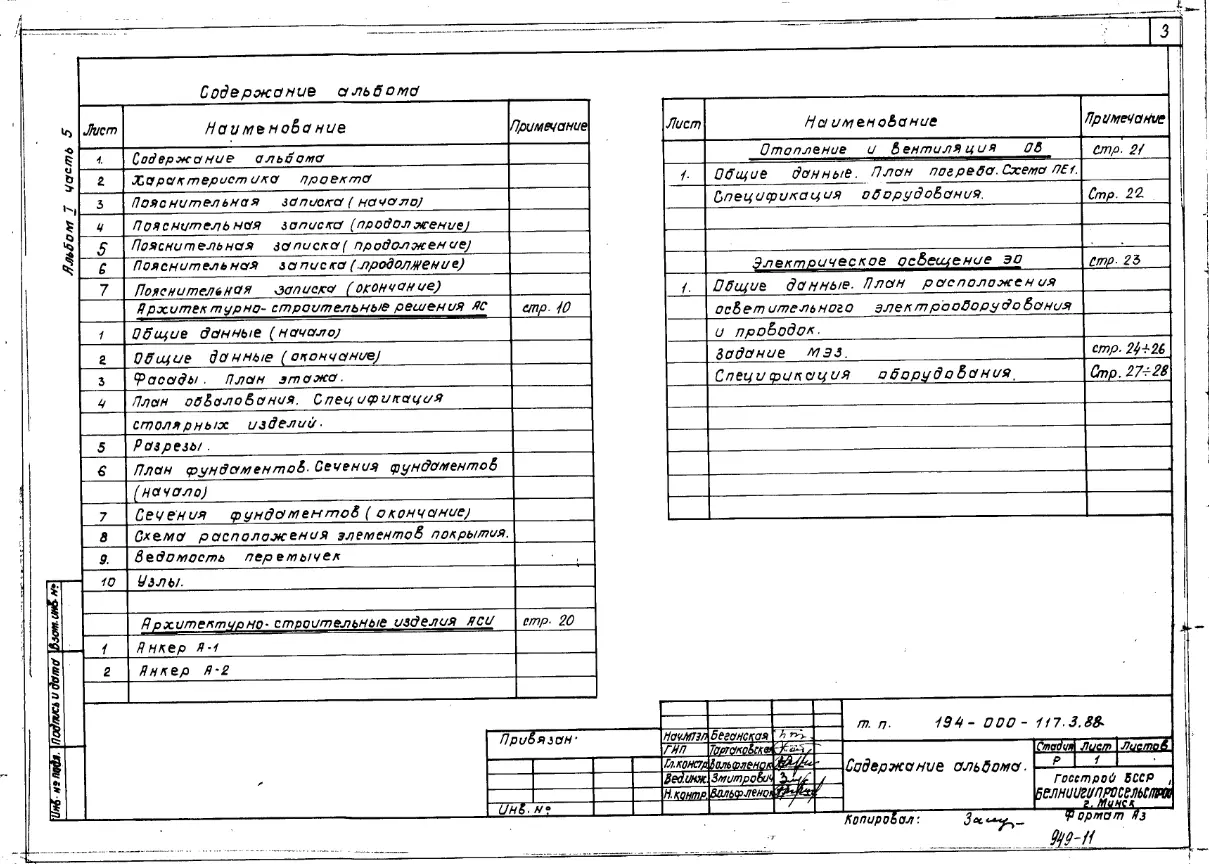 3
Альбом I часть 5
Содержание альбома
Лист Наименование Примечание
1. Содержание альбома
2 Характеристика проекта
3 Пояснительная записка (начало)
4 Пояснительная записка (продолжение)
5 Пояснительная записка (продолжение)
6 Пояснительная записка (продолжение)
7 Пояснительная записка (окончание)
Архитектурно-строительные решения АС стр. 10
1 Общие данные (начало)
2 Общие данные (окончание)
3 Фасады. План этажа.
4 План обвалования. Спецификация
столярных изделий.
5 Разрезы.
6 План фундаментов. Сечения фундаментов
(начало)
7 Сечения фундаментов (окончание)
8 Схема расположения элементов покрытия.
9. Ведомость перемычек
10 Узлы.
Архитектурно-строительные изделия АСИ стр. 20
1 Анкер А-1
2 Анкер А-2
Лист Наименование Примечание
Отопление и вентиляция ОВ стр. 21
1. Общие данные. План погреба. Схема ПЕ1.
Спецификация оборудования. Стр. 22
Электрическое освещение ЭО стр. 23
1. Общие данные. План расположения
осветительного электрооборудования
и проводок.
Задание МЭЗ. стр. 24÷26
Спецификация оборудования. Стр. 27÷28
Инв. № подл. Подпись и дата Взам. инв. №
Привязан:
Инв. №
Нач.МТЭП Беганская
ГИП Тартаковская
Гл.констр Вальфленок
Вед.инж. Змитрович
Н.контр. Вальфленок
т. п. 194-000-117.3.88
Содержание альбома.
Стадия Лист Листов
Р 1
Госстрой БССР
Белниигипросельстрой
г. Минск
Копировал:
Формат А3
949-11